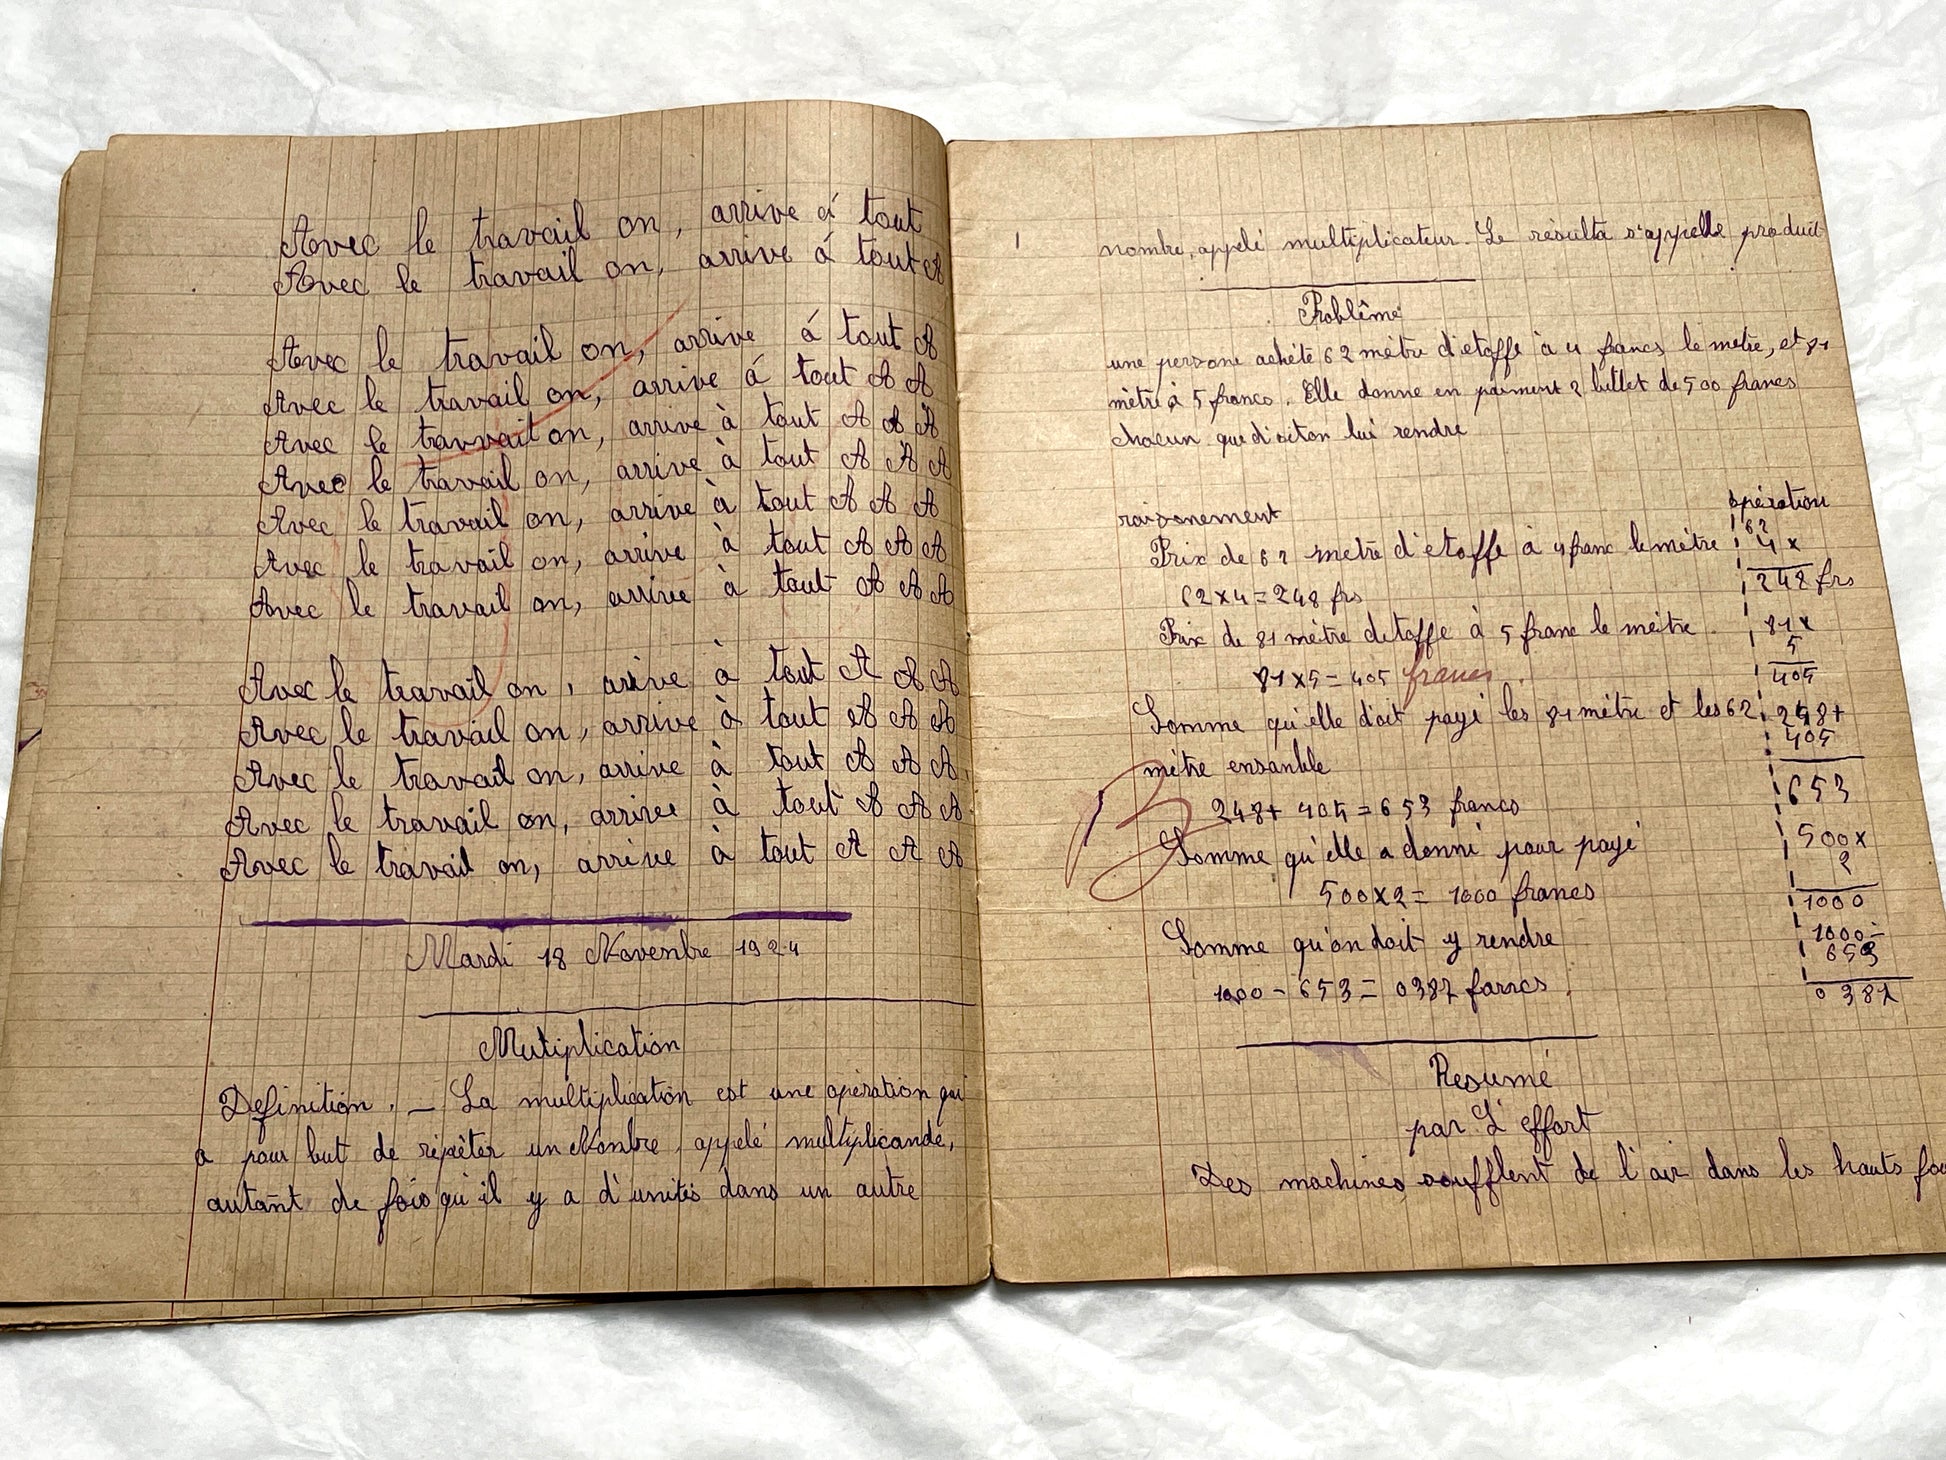 Avec le travail on, arrive á tout
Avec le travail on, arrive á tout A
Avec le travail on, arrive á tout A
Avec le travail on, arrive á tout A A
Avec le travvail on, arrive à tout A A A
Avec le travail on, arrive à tout A A A
Avec le travail on, arrive à tout A A A
Avec le travail on, arrive à tout A A A
Avec le travail on, arrive à tout A A A
Avec le travail on, arive à tout A A A
Avec le travail on, arrive à tout A A A
Avec le travail on, arrive à tout A A A
Avec le travail on, arrive à tout A A A
Avec le travail on, arrive à tout A A A
Mardi 18 Novembre 1924
Mutiplication
Definition. — La multiplication est une opération qui
a pour but de répéter un Nombre, appelé multiplicande,
autant de fois qu'il y a d'unités dans un autre
nombre, appelé multiplicateur. Le résulta s'appelle produit
Problême
une persone achéte 62 mètre d'etoffe à 4 francs le metre, et 81
mètre à 5 francs. Elle donne en paiment 2 billet de 500 francs
chacun que doiton lui rendre
raisonement
opération
Prix de 62 metre d'etoffe à 4 franc le mètre
62
4 x
62 x 4 = 248 frs
248 frs
Prix de 81 mètre detoffe à 5 franc le mètre
81 x
5
81 x 5 = 405 francs
405
Somme qu'elle doit payé les 81 mètre et les 62
248 +
405
mètre ensanble
653
248 + 405 = 653 francs
Somme qu'elle a donné pour payé
500 x
2
500 x 2 = 1000 francs
1000
Somme qu'on doit y rendre
1000 -
653
1000 - 653 = 0387 farncs
0387
Resumé
par L'effort
Des machines soufflent de l'air dans les hauts fou